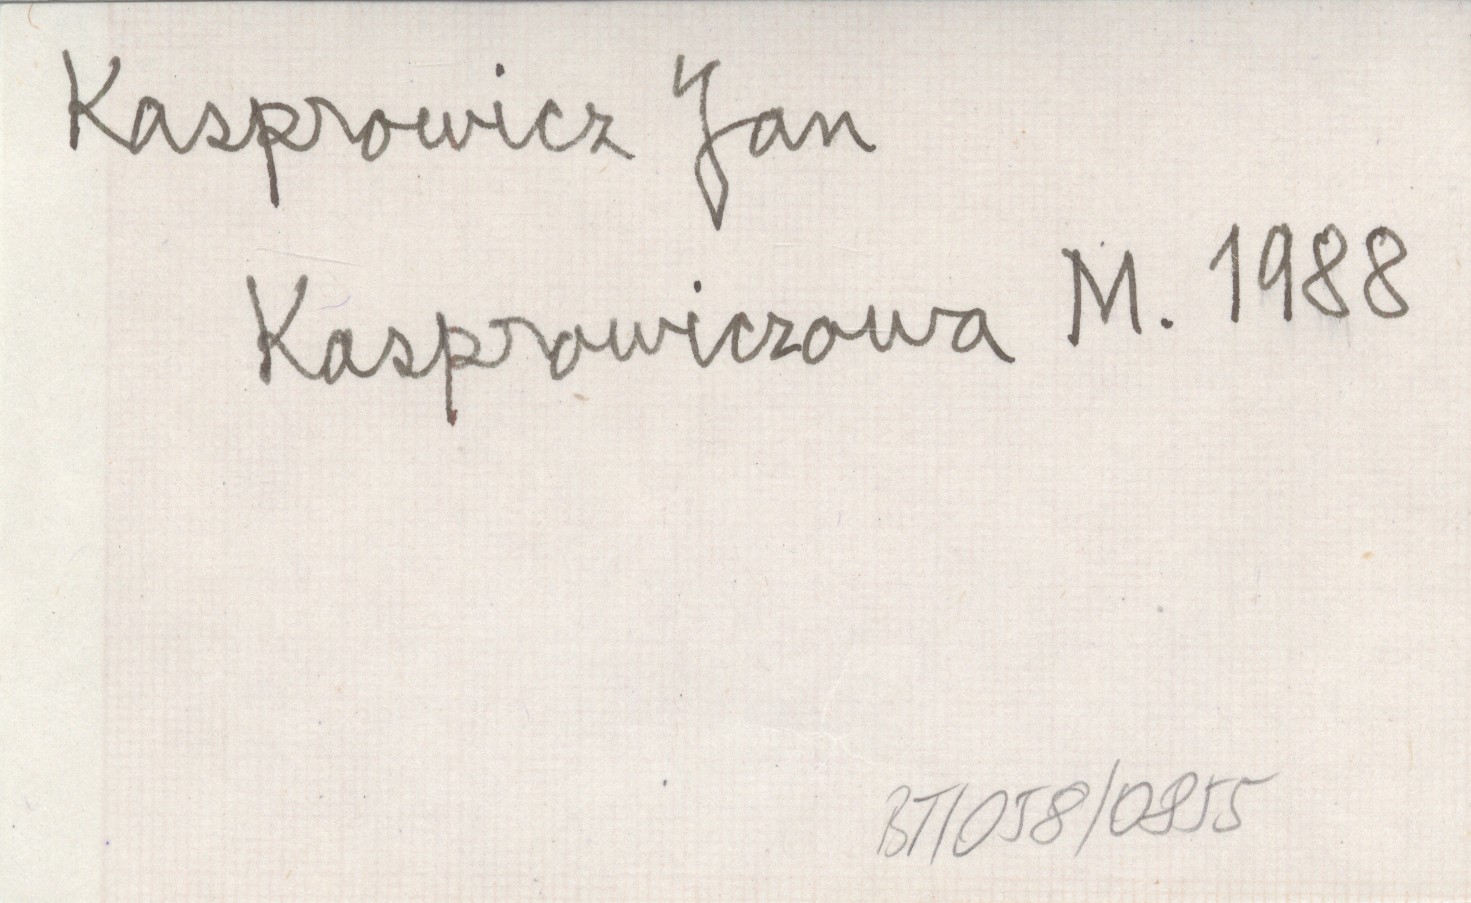 Kasprowicz Jan
Kasprowiczowa M. 1988
BT/058/0855